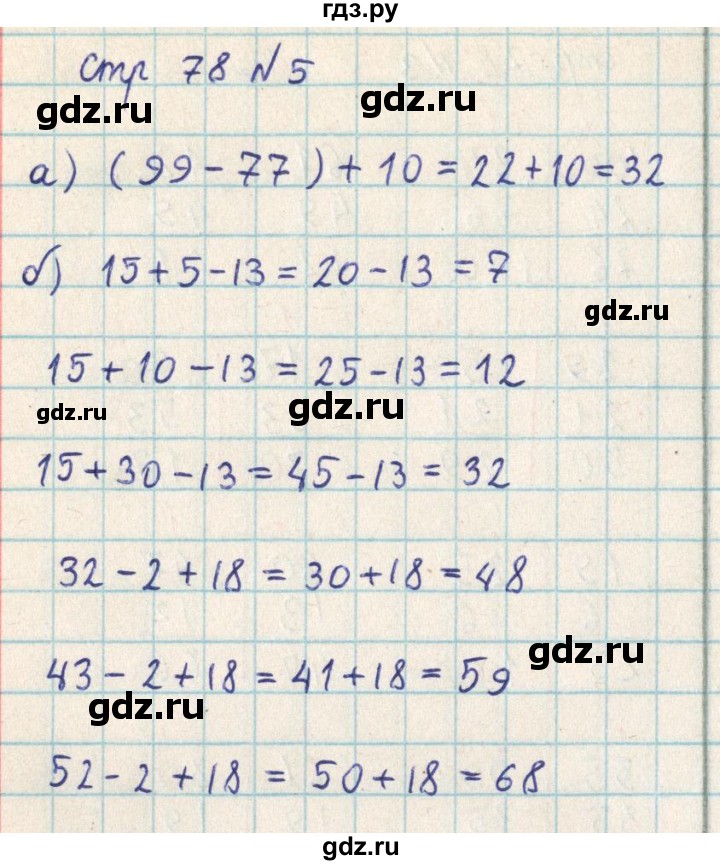 гдз.ру
стр 78 №5
gdz.ru gdz.ru
а) (99-77)+10=22+10=32
б) 15+5-13=20-13=7
gdz.ru
15+10-13=25-13=12
gdz.ru gdz.ru
15+30-13=45-13=32
32-2+18=30+18=48
gdz.ru
43-2+18=41+18=59
gdz.ru
52-2+18=50+18=68
gdz.ru